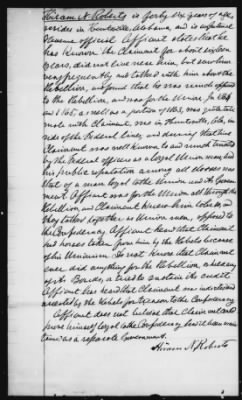 Hiram N. Roberts is forty six years of age
resides in Huntsville, Alabama, and is a
Revenue official. Affiant states that he
has known the Claimant for about sixteen
years, did not live near him, but saw him
very frequently and talked with him about the
Rebellion, and found that he was much opposed
to the Rebellion, and was for the Union. In 1864
and 1865, as well as a portion of 1863, was quite inti-
mate with Claimant, was in Huntsville, Ala, in-
side of the Federal lines, and during that time
Claimant was well known to and much trusted
by the Federal officers as a loyal Union man and
his public reputation among all classes was
that of a man loyal to the Union and the Govern-
ment. Affiant was for the Union all through the
Rebellion, and Claimant knew him to be so, and
they talked together as Union men, opposed to
the Confederacy. Affiant heard that Claimant
had horses taken from him by the Rebels because
of his Unionism. Do not know that Claimant
ever did anything for the Rebellion, or held any
of its Bonds, or tried to sustain its credit.
Affiant has heard that Claimant was
arrested by the Rebels for treason to the Confederacy
Affiant does not believe that Claimant could
prove himself loyal to the Confederacy had it been main-
tained as a separate Government.
Hiram N. Roberts